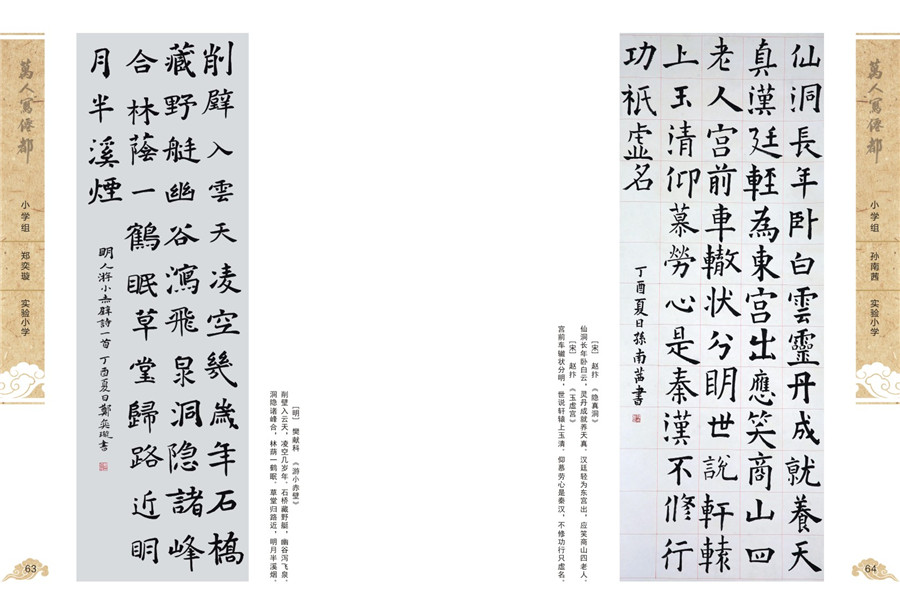 萬人寫仙都
小学组 郑奕璇 实验小学
63
削壁入雲天凌空幾歲年石橋
藏野艇幽谷瀉飛泉洞隐諸峰
合林蔭一鶴眠草堂歸路近明
月半溪煙
明人游小赤壁詩一首 丁酉夏日鄭奕璇書
［明］ 樊献科 《游小赤壁》
削壁入云天，凌空几岁年。石桥藏野艇，幽谷泻飞泉。
洞隐诸峰合，林荫一鹤眠。草堂归路近，明月半溪烟。
仙洞長年卧白雲靈丹成就養天
真漢廷輕為東宫出應笑商山四
老人宫前車轍状分明世說軒轅
上玉清仰慕勞心是秦漢不修行
功祇虚名
丁酉夏日孫南茜書
［宋］ 赵抃 《隐真洞》
仙洞长年卧白云，灵丹成就养天真。汉廷轻为东宫出，应笑商山四老人。
［宋］ 赵抃 《玉虚宫》
宫前车辙状分明，世说轩辕上玉清。仰慕劳心是秦汉，不修功行只虚名。
萬人寫仙都
小学组 孙南茜 实验小学
64